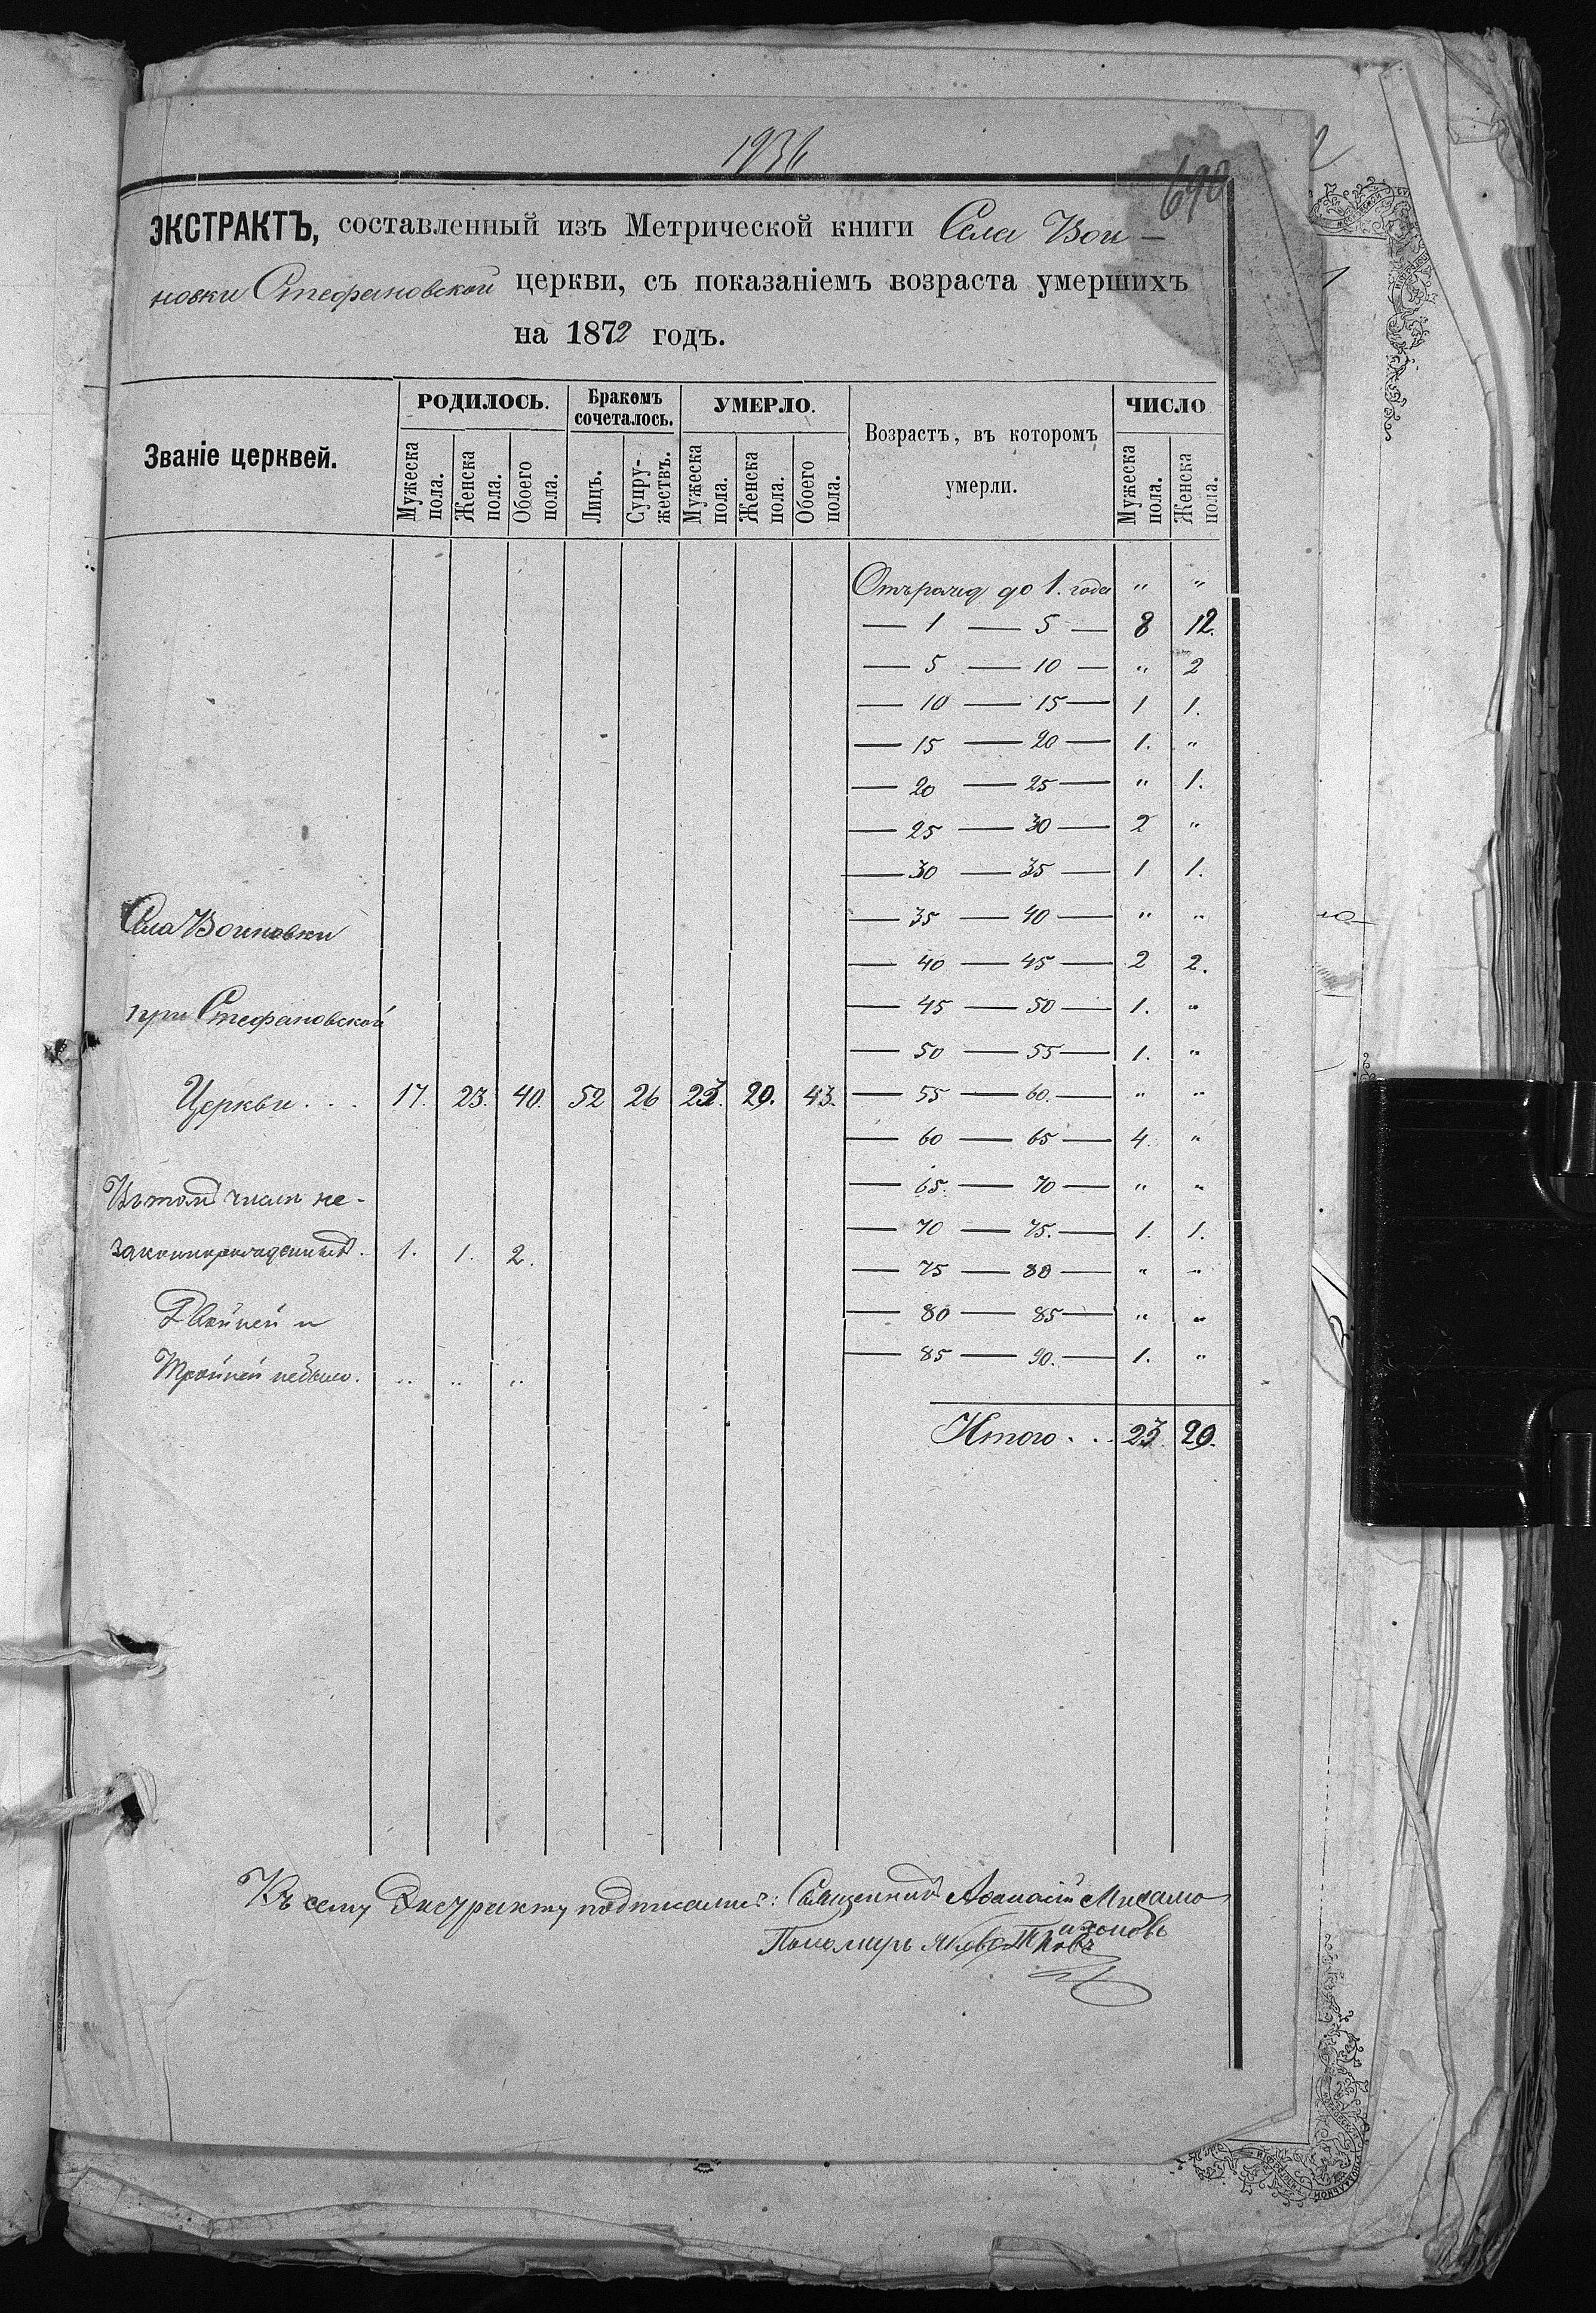 1936
690
ЭКСТРАКТЪ, составленный изъ Метрической книги Села Вои-
новки Стефановской церкви, съ показаніемъ возраста умершихъ
на 1872 годъ.
Званіе церквей.
РОДИЛОСЬ.
Бракомъ сочеталось.
УМЕРЛО.
Возрастъ, въ которомъ умерли.
ЧИСЛО
Мужеска пола.
Женска пола.
Обоего пола.
Лицъ.
Супружествъ.
Мужеска пола.
Женска пола.
Обоего пола.
Мужеска пола.
Женска пола.
до 1. года " "
— 1 — 5 — 8 12.
— 5 — 10 — " 2
— 10 — 15 — 1 1.
— 15 — 20 — 1. "
— 20 — 25 — " 1.
— 25 — 30 — 2 "
— 30 — 35 — 1 1.
— 35 — 40 — " "
— 40 — 45 — 2 2.
— 45 — 50 — 1. "
— 50 — 55 — 1. "
— 55 — 60. — " "
— 60 — 65 — 4. "
— 65. — 70 — " "
— 70 — 75. — 1. 1.
— 75 — 80 — " "
— 80 — 85 — " "
— 85 — 90. — 1. "
Итого . . 23. 20.
Села Воиновки
при Стефановской
Церкви . . . 17. 23. 40. 52 26 23. 20. 43.
Въ томъ числѣ не-
законнорожденныхъ. 1. 1. 2.
Двойней и
Тройней небыло. " " "
Къ сему Экстракту подписались: Священникъ Афанасій
Пономарь